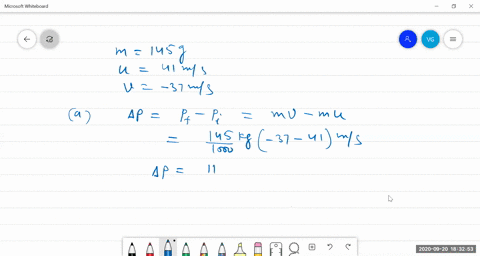 Microsoft Whiteboard
VG
m = 145 g
u = 41 m/s
v = -37 m/s
(a) ΔP = Pf - Pi = mv - mu
= 145/1000 kg (-37 - 41) m/s
ΔP = 11
2020-09-20 18:32:53